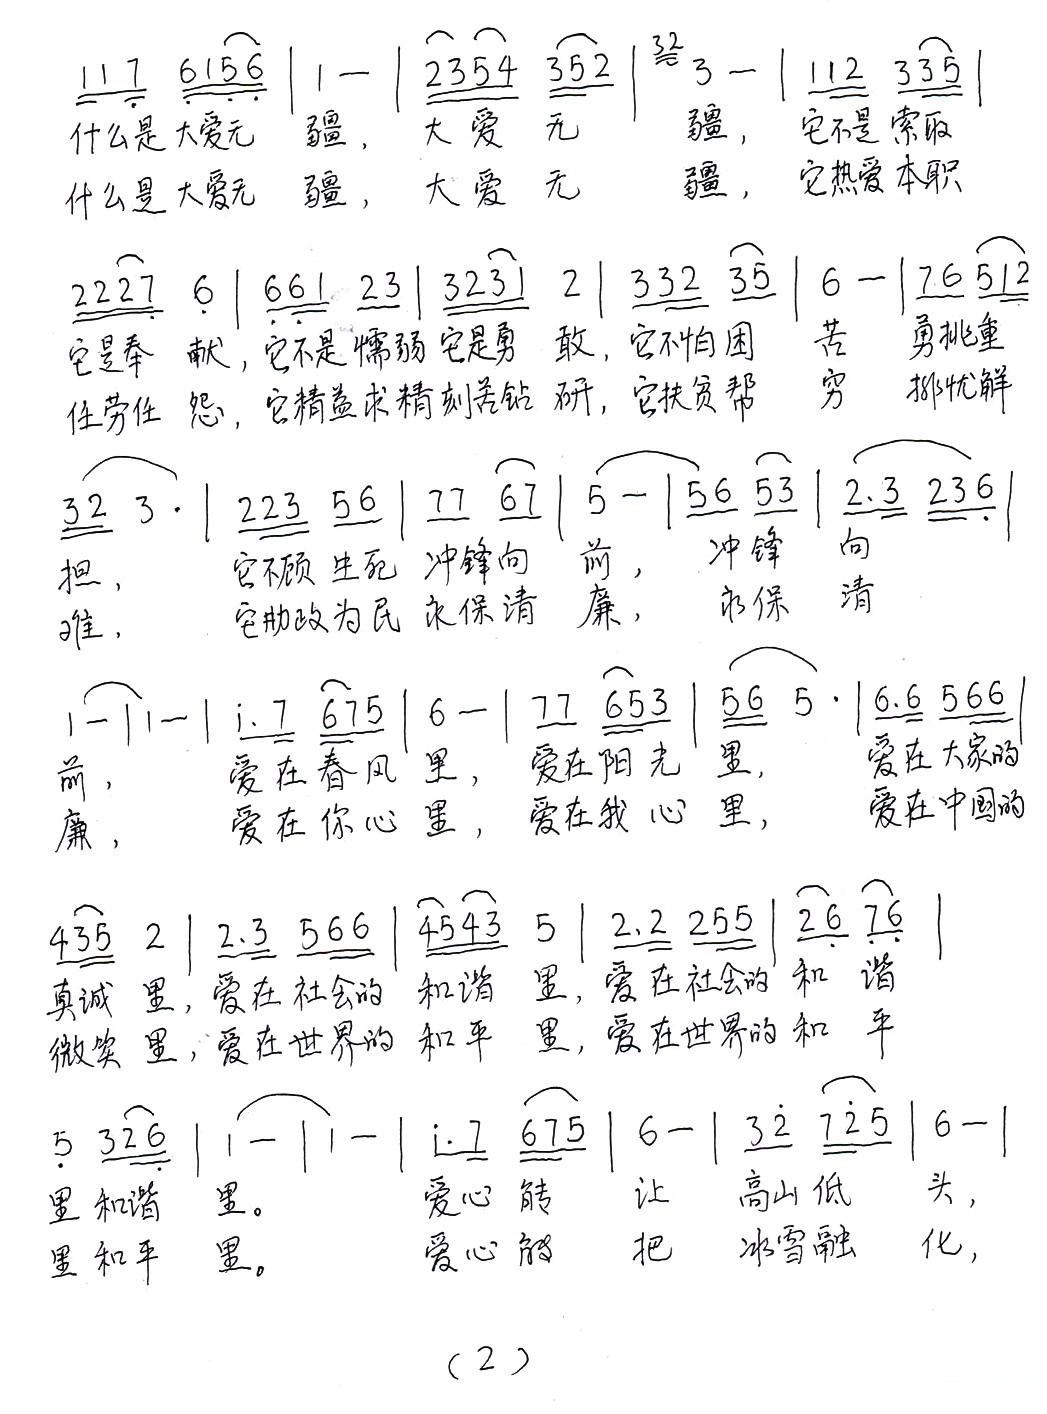 117 6156 | 1 — | 2354 352 | 32 3 — | 112 335 |
什么是大爱无 疆, 大爱无 疆, 它不是索取
什么是大爱无 疆, 大爱无 疆, 它热爱本职
2227 6 | 661 23 | 3231 2 | 332 35 | 6 — | 76 512
它是奉 献, 它不是懦弱它是勇 敢, 它不怕困 苦 勇挑重
任劳任 怨, 它精益求精刻苦钻 研, 它扶贫帮 穷 排忧解
32 3 · | 223 56 | 77 67 | 5 — | 56 53 | 2.3 236 |
担, 它不顾生死 冲锋向 前, 冲锋 向
难, 它勤政为民 永保清 廉, 永保 清
1 — | 1 — | i.7 675 | 6 — | 77 653 | 56 5 · | 6.6 566 |
前, 爱在春风 里, 爱在阳光 里, 爱在大家的
廉, 爱在你心 里, 爱在我心 里, 爱在中国的
435 2 | 2.3 566 | 4543 5 | 2.2 255 | 26 76 |
真诚 里, 爱在社会的 和谐 里, 爱在社会的 和 谐
微笑 里, 爱在世界的 和平 里, 爱在世界的 和 平
5 326 | 1 — | 1 — | i.7 675 | 6 — | 32 725 | 6 — |
里和谐 里。 爱心能 让 高山低 头,
里和平 里。 爱心能 把 冰雪融 化,
(2)